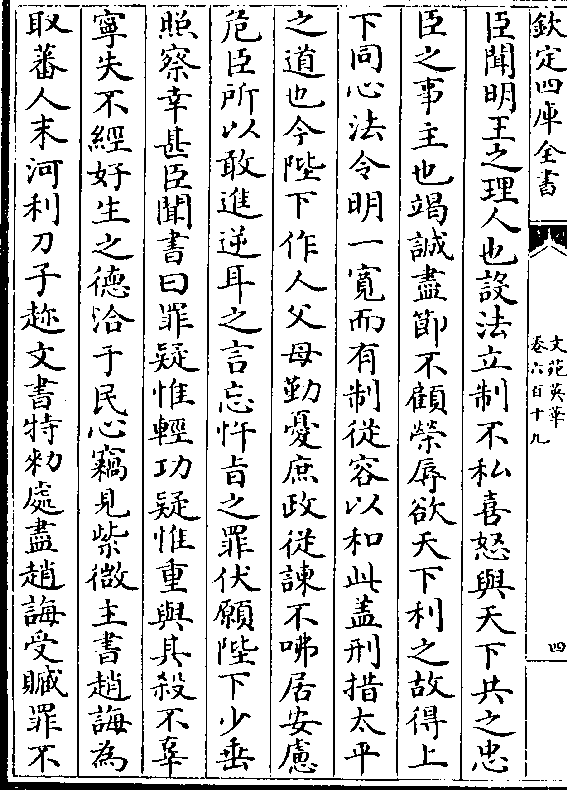 欽定四庫全書
文苑英華
卷六百十九
四
臣聞明王之理人也設法立制不私喜怒與天下共之忠
臣之事主也竭誠盡節不顧榮辱欲天下利之故得上
下同心法令明一寬而有制從容以和此盖刑措太平
之道也今陛下作人父母勤憂庶政從諫不咈居安慮
危臣所以敢進逆耳之言忘忤旨之罪伏願陛下少垂
照察幸甚臣聞書曰罪疑惟輕功疑惟重與其殺不辜
寧失不經好生之德洽于民心竊見紫微主書趙誨為
取蕃人末河利刀子趂文書特勅處盡趙誨受贓罪不